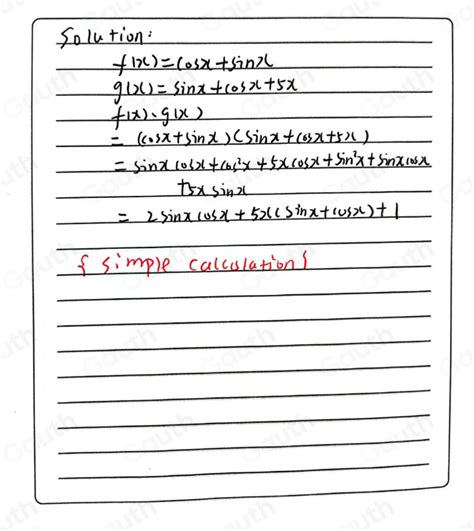 Solution:
f(x)=cosx+sinx
g(x)= sinx+cosx+5x
f(x)·g(x)
= (cosx+sinx)(sinx+cosx+5x)
= sinx cosx+cos²x+5xcosx+sin²x+sinxcosx
+5x sinx
= 2sinx cosx+5x(sinx+cosx)+1
{ simple calculation}
Gauth